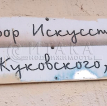 ор Искусст
Жуковского,